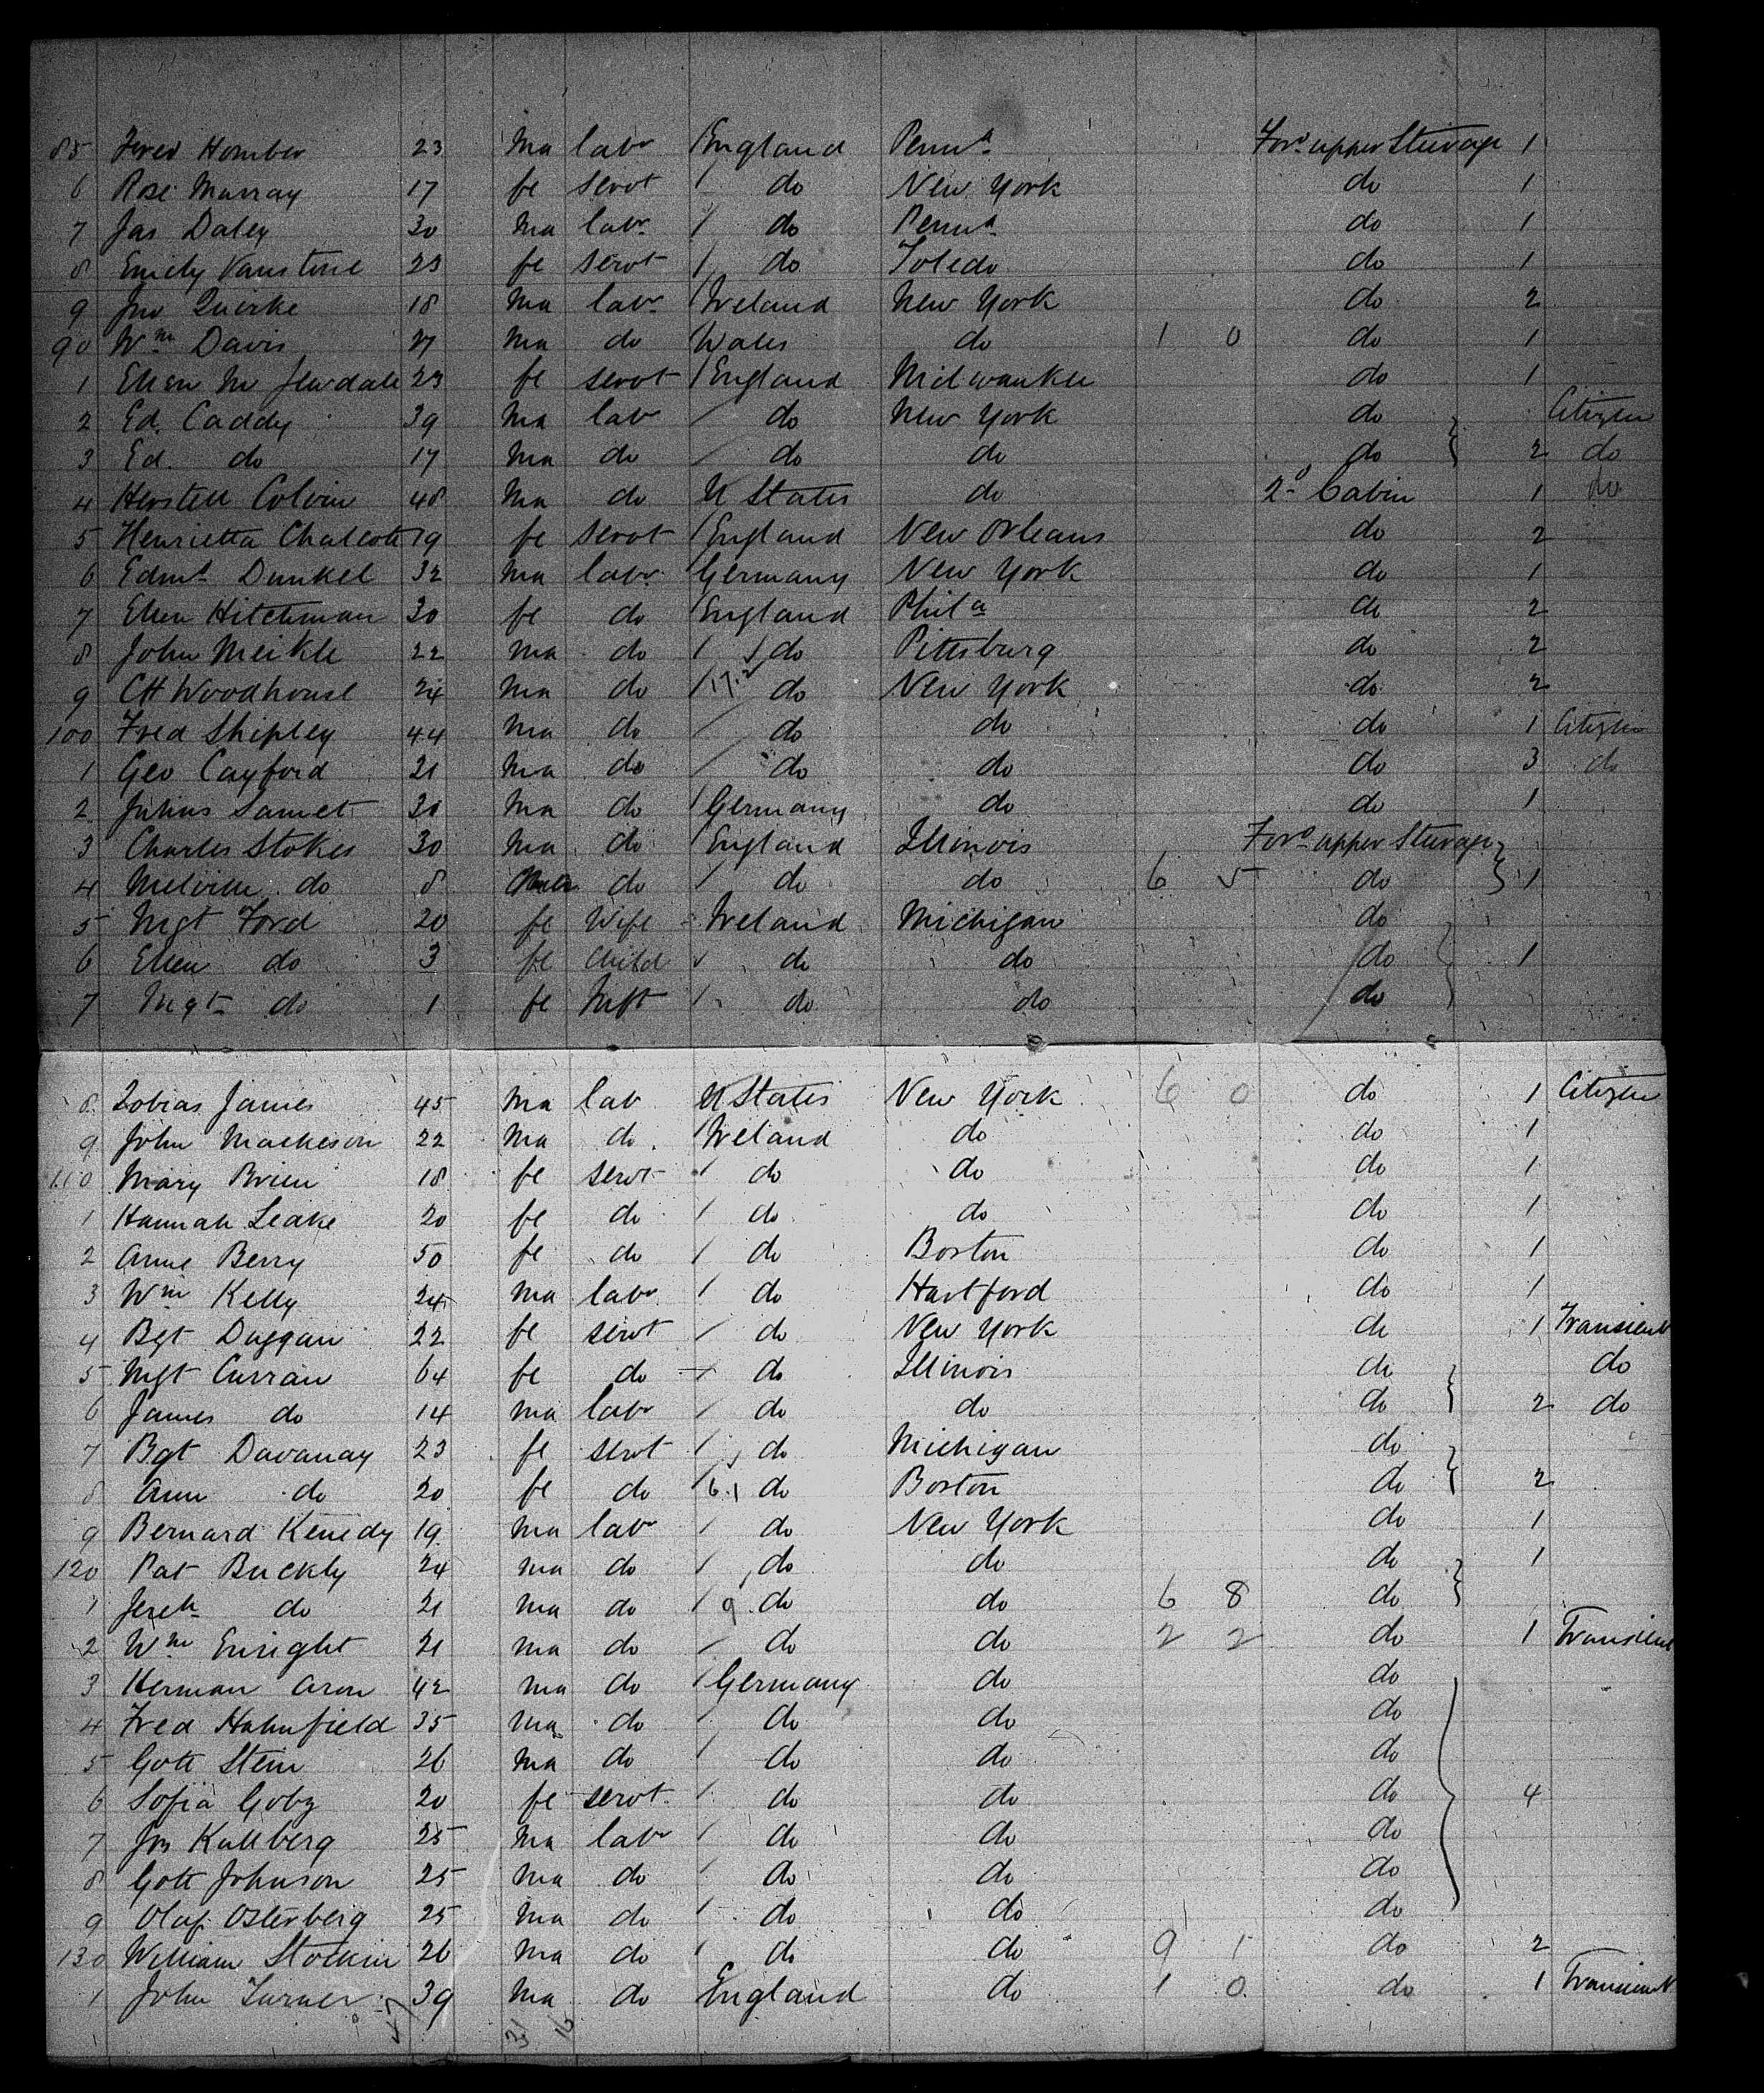 85 Fred Homber 23 Ma labr England Penna Ford upper Steerage 1
6 Rose Murray 17 fe servt / do New York do 1
7 Jas Daley 30 Ma labr / do Penna do 1
8 Emily Vanstone 23 fe servt / do Toledo do 1
9 Jno Quirke 18 Ma labr / Ireland New York do 2
90 Wm Davis 27 Ma do Wales do 1 0 do 1
1 Ellen M 23 fe servt / England Milwaukee do 1
2 Ed. Caddy 39 Ma labr / do New York do Citizen
3 Ed. do 17 Ma do / do do do 2 do
4 Colvin 48 Ma do U States do 2d Cabin 1 do
5 Henrietta Chalcott 19 fe servt / England New Orleans do 2
6 Edmd Dunkel 32 Ma labr Germany New York do 1
7 Ellen Hitchman 30 fe do / England Phila do 2
8 John Meikle 22 Ma do / do Pittsburg do 2
9 CH Woodhouse 24 Ma do / 17.2 do New York do 2
100 Fred Shipley 44 Ma do / do do do 1 Citizen
1 Geo Cayford 21 Ma do / do do do 3 do
2 Julius Samet 30 Ma do / Germany do do 1
3 Charles Stokes 30 Ma do / England Illinois Ford upper Steerage
4 Melville do 8 Ma do / do do 6 5 do 1
5 Mgt Ford 20 fe Wife Ireland Michigan do
6 Ellen do 3 fe Child do do do 1
7 Mgt do 1 fe Inft / do do do
8 Tobias James 45 Ma lab U States New York 6 0 do 1 Citizen
9 John Mackeson 22 Ma do / Ireland do do 1
110 Mary Brien 18 fe servt / do do do 1
1 Hannah Leake 20 fe do / do do do 1
2 Anne Berry 50 fe do / do Boston do 1
3 Wm Kelly 24 Ma labr / do Hartford do 1
4 Bgt Duggan 22 fe servt / do New York do 1 Transient
5 Mgt Curran 64 fe do / do Illinois do do
6 James do 14 Ma labr / do do do 2 do
7 Bgt Davanay 23 fe servt / do Michigan do
8 Ann do 20 fe do 6.1 do Boston do 2
9 Bernard Kenedy 19 Ma labr / do New York do 1
120 Pat Buckly 24 Ma do / do do do 1
1 Jereh do 21 Ma do / 9 do do 6 8 do
2 Wm Enright 21 Ma do / do do 2 2 do 1 Transient
3 Herman Aron 42 Ma do / Germany do do
4 Fred Hahnfield 35 Ma do / do do do
5 Gott Stein 26 Ma do / do do do
6 Sofia Goby 20 fe servt / do do do 4
7 Jos Kallberg 25 Ma labr / do do do
8 Gott Johnson 25 Ma do / do do do
9 Olaf Osterberg 25 Ma do / do do do
130 William 26 Ma do / do do 9 1 do 2
1 John Turner 39 Ma do England do 1 0 do 1 Transient
31 16